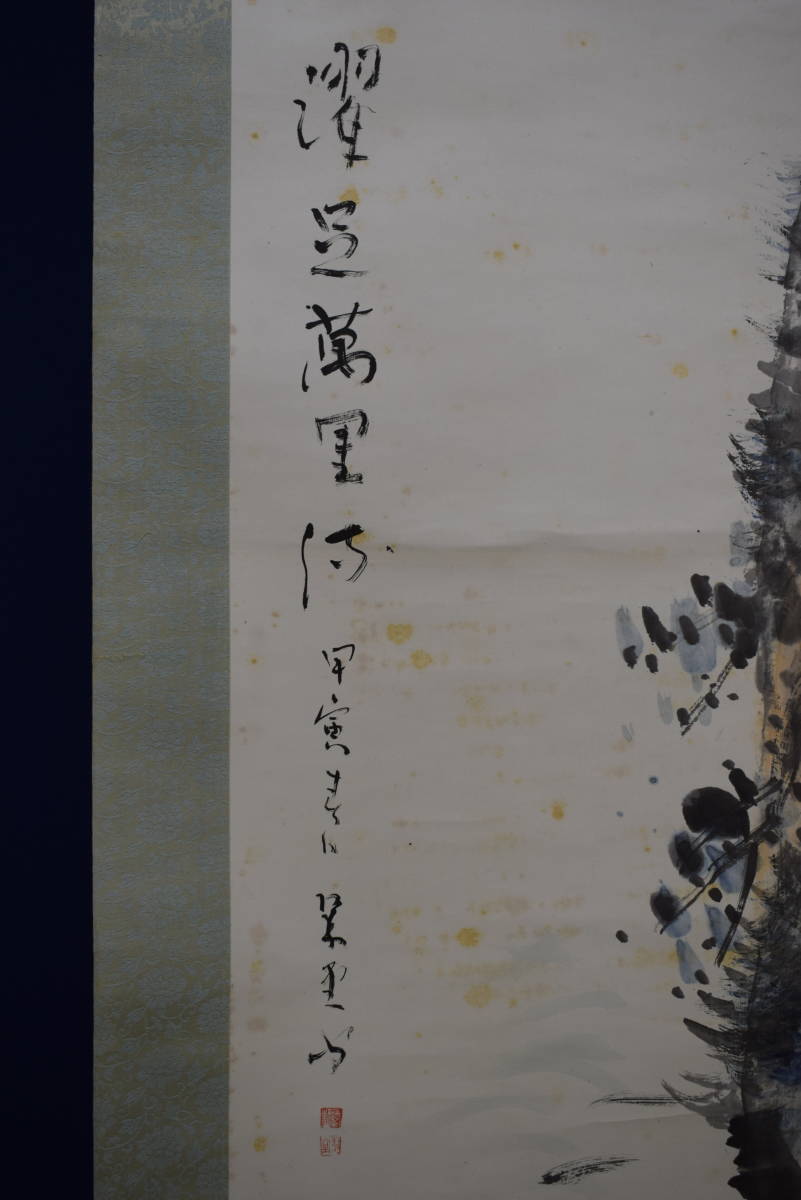 濯足萬里流 甲寅春日